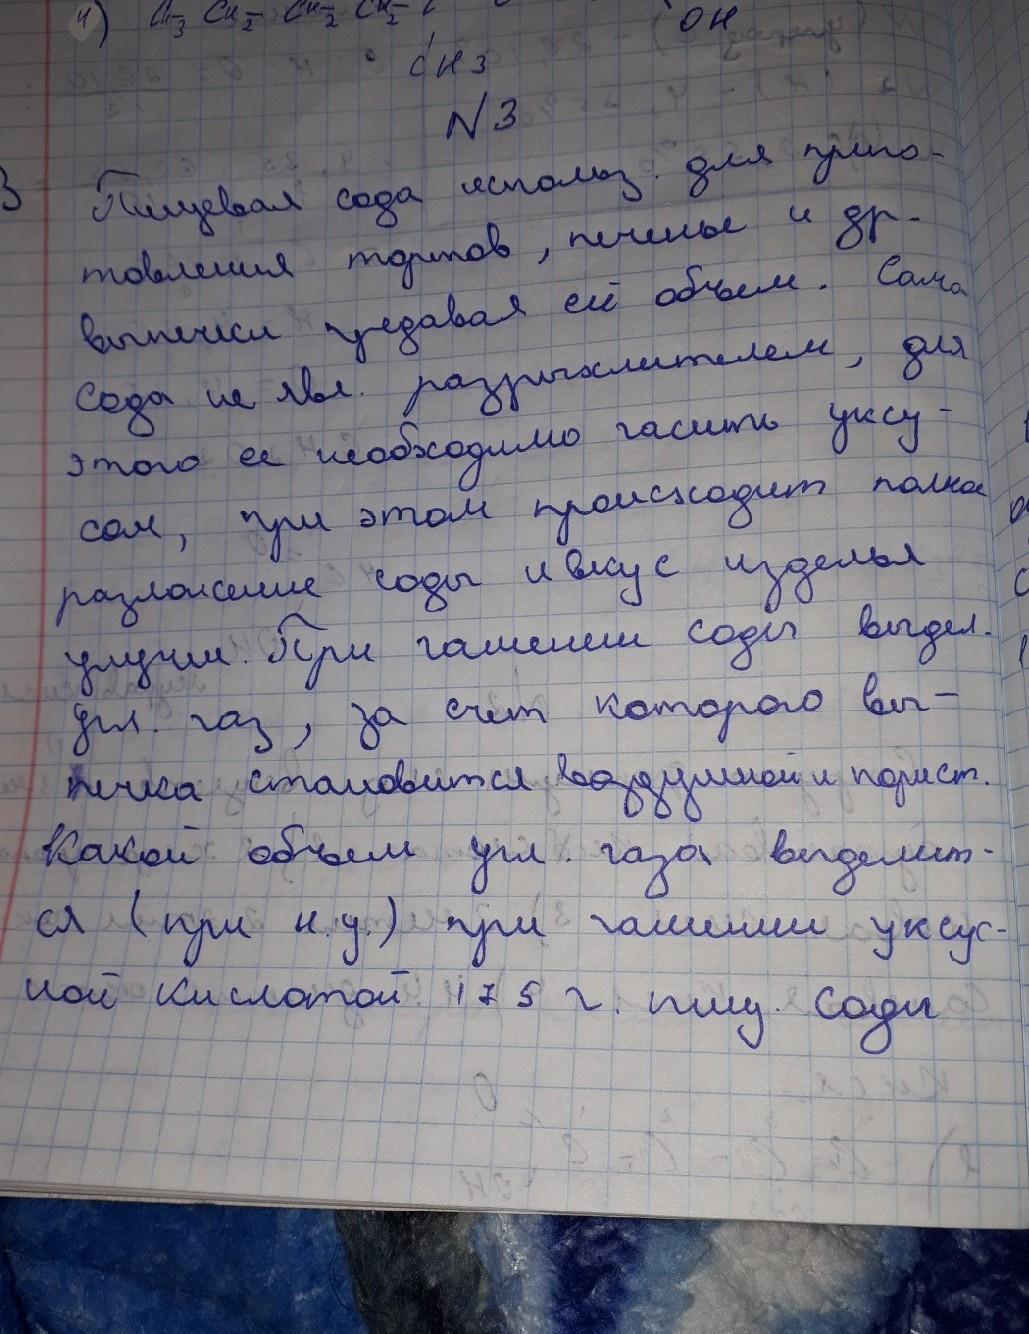 4) CH3 CH2- CH2 CH2-
OH
CH3
N3
3 Пищевая сода использ. для приго-
товления тортов, печенье и др.
выпечки предавая ей объем. Сама
сода не явл. разрыхлителем, для
этого ее необходимо гасить уксу-
сом, при этом происходит полное
разложение соды и вкус изделья
улучш. При гашении соды выдел.
угл. газ, за счет которого вы-
печка становится воздушной и порист.
Какой объем угл. газа выделит-
ся (при н.у.) при гашении уксус-
ной кислотой 175 г. пищ. соды